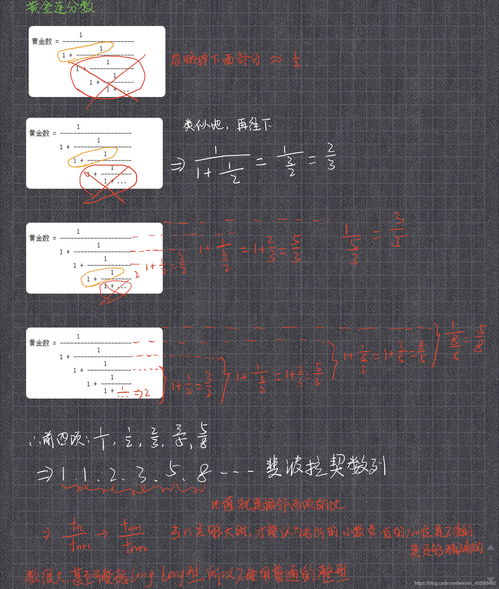 黄金连分数
黄金数 = 1
1 + 1
1 + 1
1 + 1
1 + ...
忽略掉下面部分 ≈ 1/2
黄金数 = 1
1 + 1
1 + 1
1 + 1
1 + ...
类似地，再往下
⇒ 1/(1+1/2) = 1/(3/2) = 2/3
黄金数 = 1
1 + 1
1 + 1
1 + 1
1 + ...
2
1+1/2=3/2
1+1/(3/2)=1+2/3=5/3
1/(5/3) = 3/5
黄金数 = 1
1 + 1
1 + 1
1 + 1
1 + 1
1 + ... ⇒2
1+1/2=3/2
1+1/(3/2)=1+2/3=5/3
1+1/(5/3)=1+3/5=8/5
1/(8/5)=5/8
∴前四项: 1/1, 1/2, 2/3, 3/5, 5/8
⇒ 1 1 . 2 . 3 . 5 . 8 ... 斐波拉契数列
比值就是相邻两项的比
⇒ fn/fn+1 → fn+1/fn+2 当n足够大时, 才能认为 的小数点后的100位是
是足够精确的
数很大,甚至可能超long long型,所以不能用普通的整型
https://blog.csdn.net/weixin_45550460